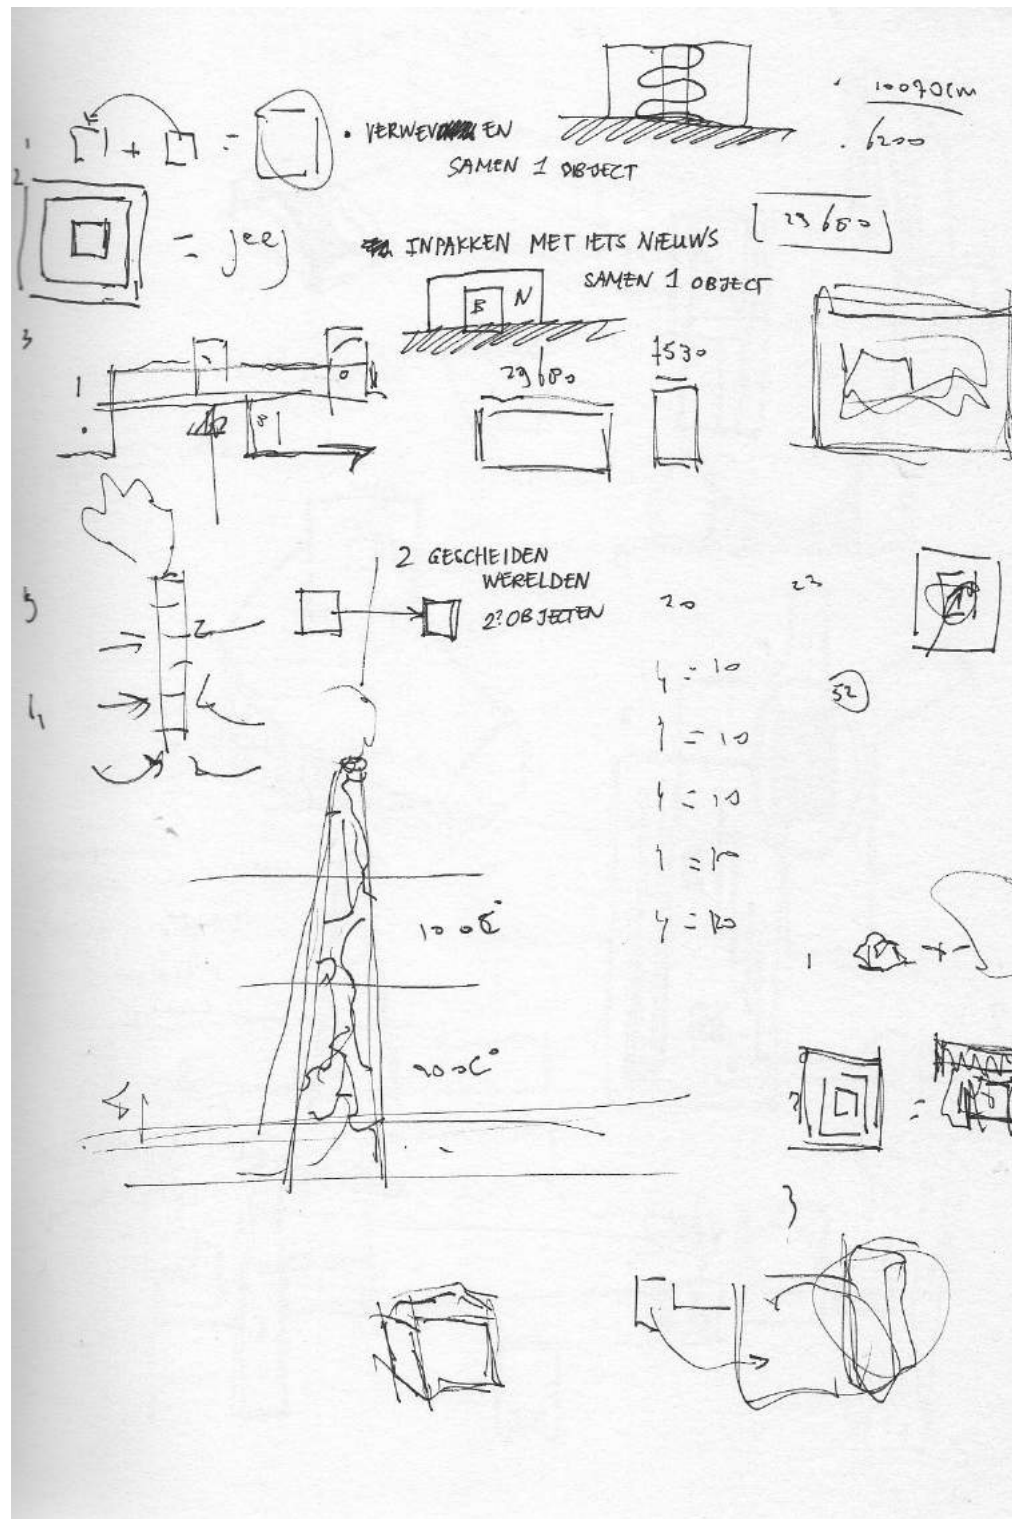 1 + =
• VERWEVEN
SAMEN 1 OBJECT
6200
2
= jeej
INPAKKEN MET IETS NIEUWS
SAMEN 1 OBJECT
29680
B N
3
29680
7530
2 GESCHEIDEN
WERELDEN
2? OBJECTEN
5
20
23
4 = 10
52
4
1 = 10
4 = 10
1 = 10
100C°
4 = 10
1 +
200C°
2 =
3